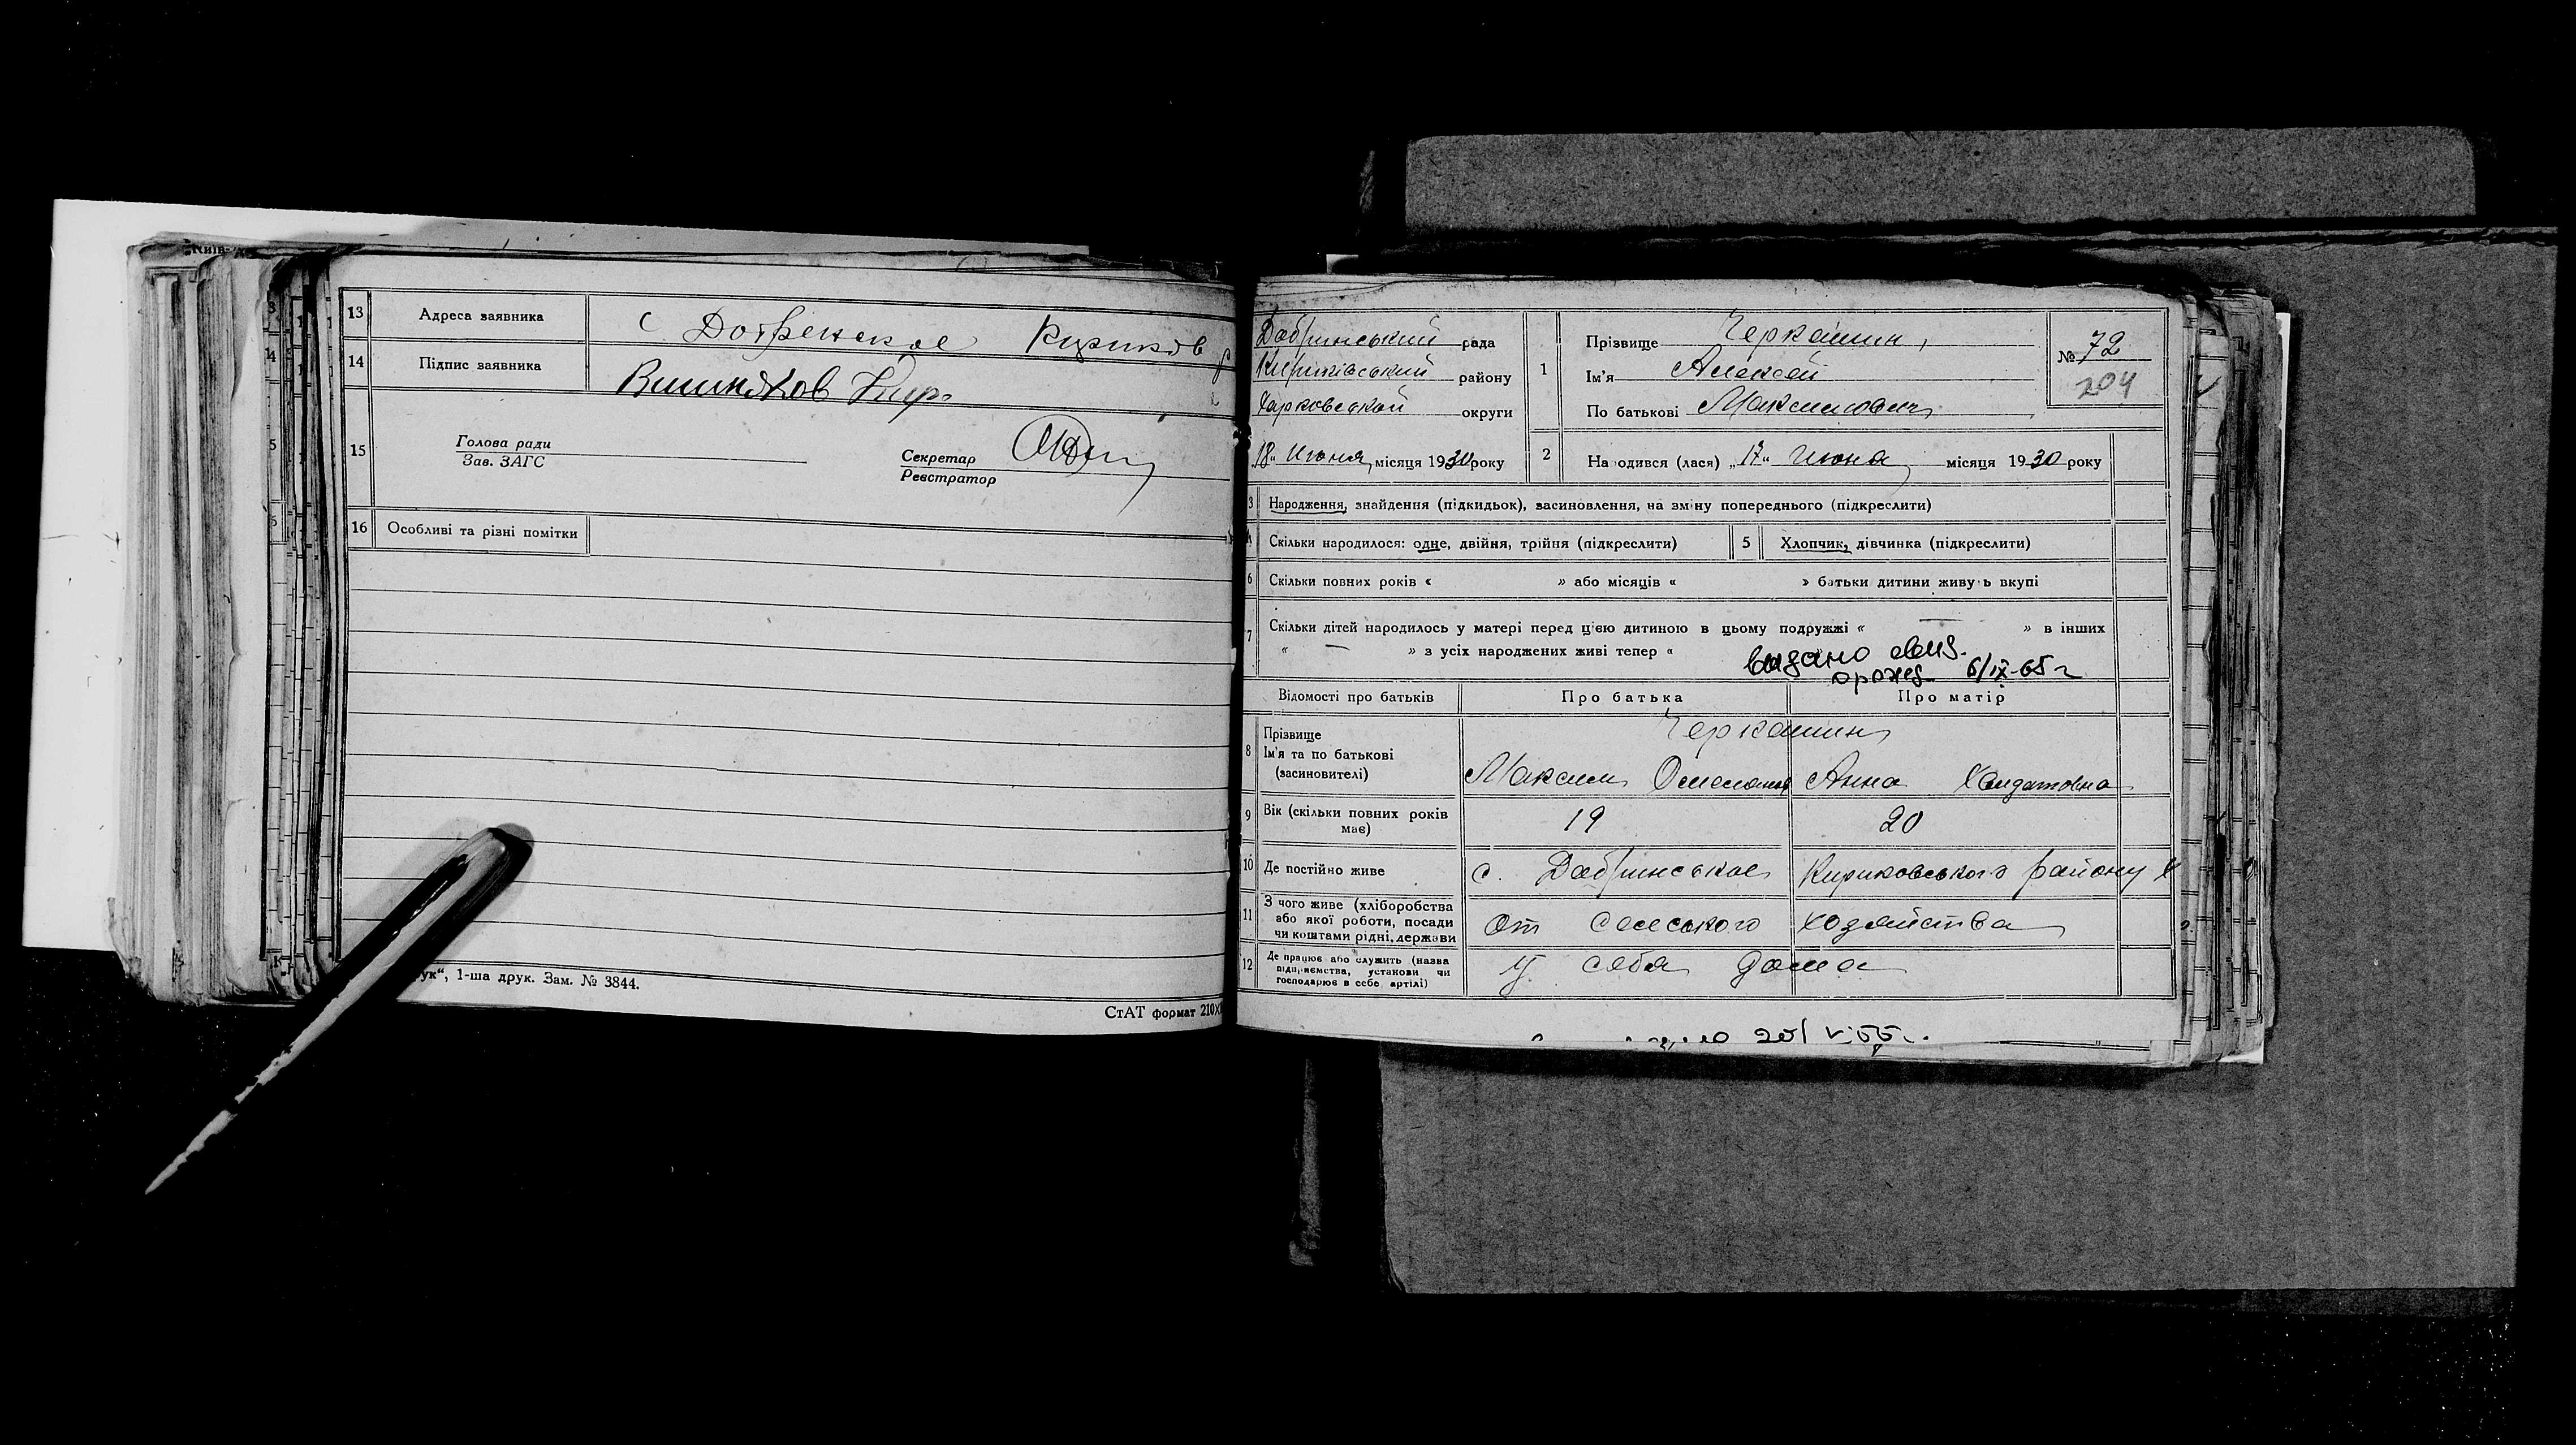 Київ-
13 Адреса заявника с Кириков
14 Підпис заявника Вишняков Кир.
15 Голова ради
Зав. ЗАГС
Секретар
Реєстратор
16 Особливі та різні помітки
ук“, 1-ша друк. Зам. № 3844.
СтАТ формат 210X
Добринський рада
Кириківський району
Харковській округи
18" Июня місяця 1930 року
1 Прізвище Черкашин
Ім'я Алексей
По батькові Максимович
№ 72
204
2 На одився (лася) „17" Июня місяця 1930 року
3 Народження, знайдення (підкидьок), засиновлення, на зміну попереднього (підкреслити)
Скільки народилося: одне, двійня, трійня (підкреслити) 5 Хлопчик, дівчинка (підкреслити)
6 Скільки повних років « » або місяців « » батьки дитини живу ь вкупі
7 Скільки дітей народилось у матері перед цією дитиною в цьому подружжі « — » в інших
« — » з усіх народжених живі тепер «
видано свид.
о рожд 6/IX-65 г
Відомості про батьків Про батька Про матір
8 Прізвище
Ім'я та по батькові
(засиновителі)
Черкашин
Максим Анна
9 Вік (скільки повних років
має) 19 20
10 Де постійно живе с. Добринськое Кириковського району
11 З чого живе (хліборобства
або якої роботи, посади
чи коштами рідні, держави
От сельського хозяйства
12 Де працює або служить (назва
підприємства, установи чи
господарює в себе, артілі)
У себя дома